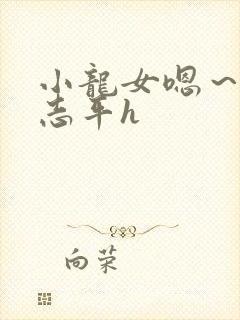 小龍女嗯~
志平h
向荣